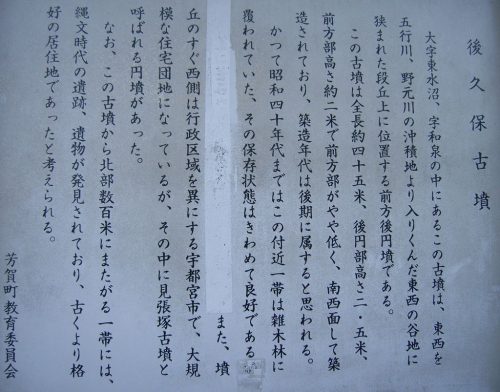 後久保古墳
大字東水沼、字和泉の中にあるこの古墳は、東西を
五行川、野元川の沖積地より入りくんだ東西の谷地に
狭まれた段丘上に位置する前方後円墳である。
この古墳は全長約四十五米、後円部高さ二・五米、
前方部高さ約二米で前方部がやや低く、南西面して築
造されており、築造年代は後期に属すると思われる。
かつて昭和四十年代まではこの付近一帯は雑木林に
覆われていた、その保存状態はきわめて良好である
また、墳
丘のすぐ西側は行政区域を異にする宇都宮市で、大規
模な住宅団地になっているが、その中に見張塚古墳と
呼ばれる円墳があった。
なお、この古墳から北部数百米にまたがる一帯には、
縄文時代の遺跡、遺物が発見されており、古くより格
好の居住地であったと考えられる。
芳賀町教育委員会